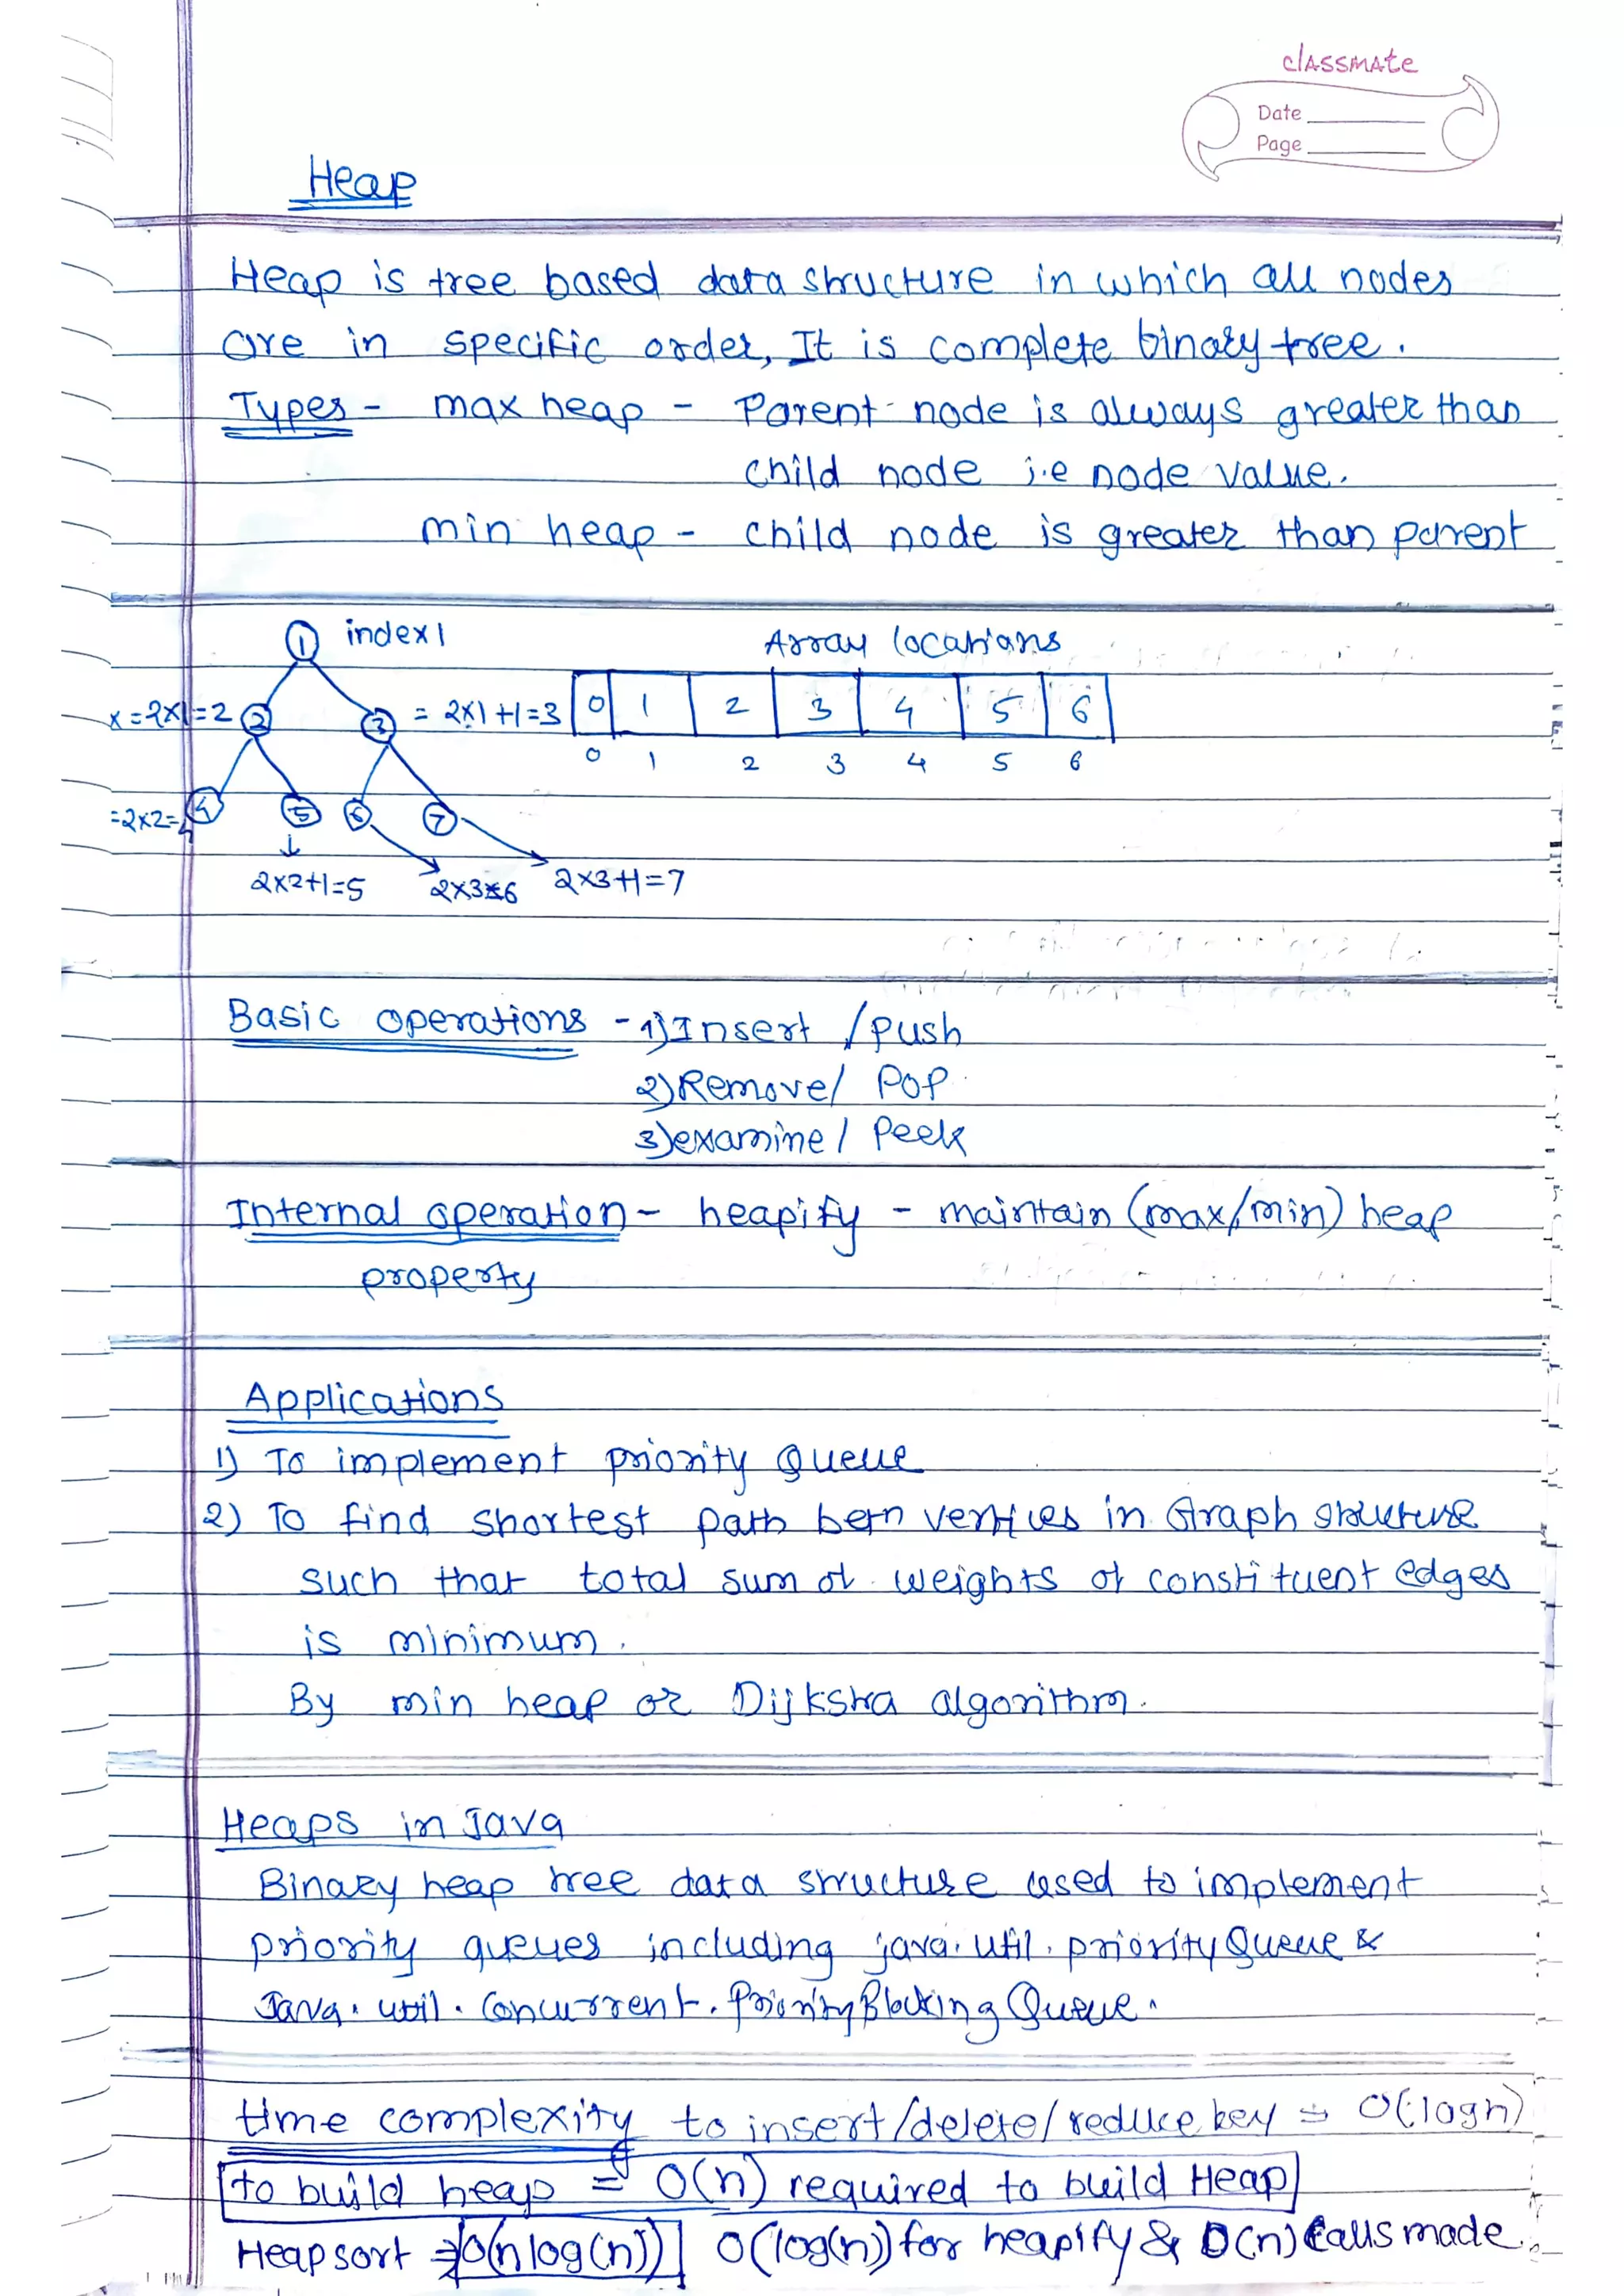 classmate
Date
Page
Heap
Heap is tree based data structure in which all nodes
are in specific order, It is complete binary tree.
Types - max heap - Parent node is always greater than
child node i.e node value.
min heap - child node is greater than parent
1 index 1 Array locations
x=2x1=2 2 3 = 2x1+1=3 0 1 2 3 4 5 6
0 1 2 3 4 5 6
=2x2=4 4 5 6 7
2x2+1=5 2x3=6 2x3+1=7
Basic operations - 1) Insert / push
2) Remove / POP
3) examine / Peek
Internal operation - heapify - maintain (max/min) heap
property
Applications
1) To implement priority Queue
2) To find shortest path betn vertices in Graph structure
such that total sum of weights of constituent edges
is minimum.
By min heap or Dijkstra algorithm.
Heaps in Java
Binary heap tree data structure used to implement
priority queues including java.util.priorityQueue &
Java.util.Concurrent.PriorityBlockingQueue.
time complexity to insert/delete/reduce key = O(logn)
to build heap = O(n) required to build Heap
Heap sort = O(nlog(n)) O(log(n)) for heapify & O(n) calls made.